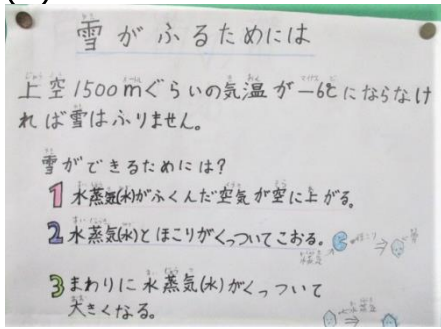 雪がふるためには
上空1500mぐらいの気温が-6℃にならなけ
れば雪はふりません。
雪ができるためには？
1 水蒸気(水)がふくんだ空気が空に上がる。
2 水蒸気(水)とほこりがくっついてこおる。
3 まわりに水蒸気(水)がくっついて
大きくなる。